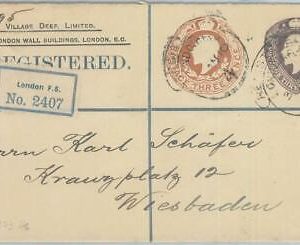 Village Deep, Limited.
LONDON WALL BUILDINGS, LONDON, E.C.
REGISTERED.
London F.S.
No. 2407
THREE
Herrn Karl Schäfer
Kranzplatz 12
Wiesbaden